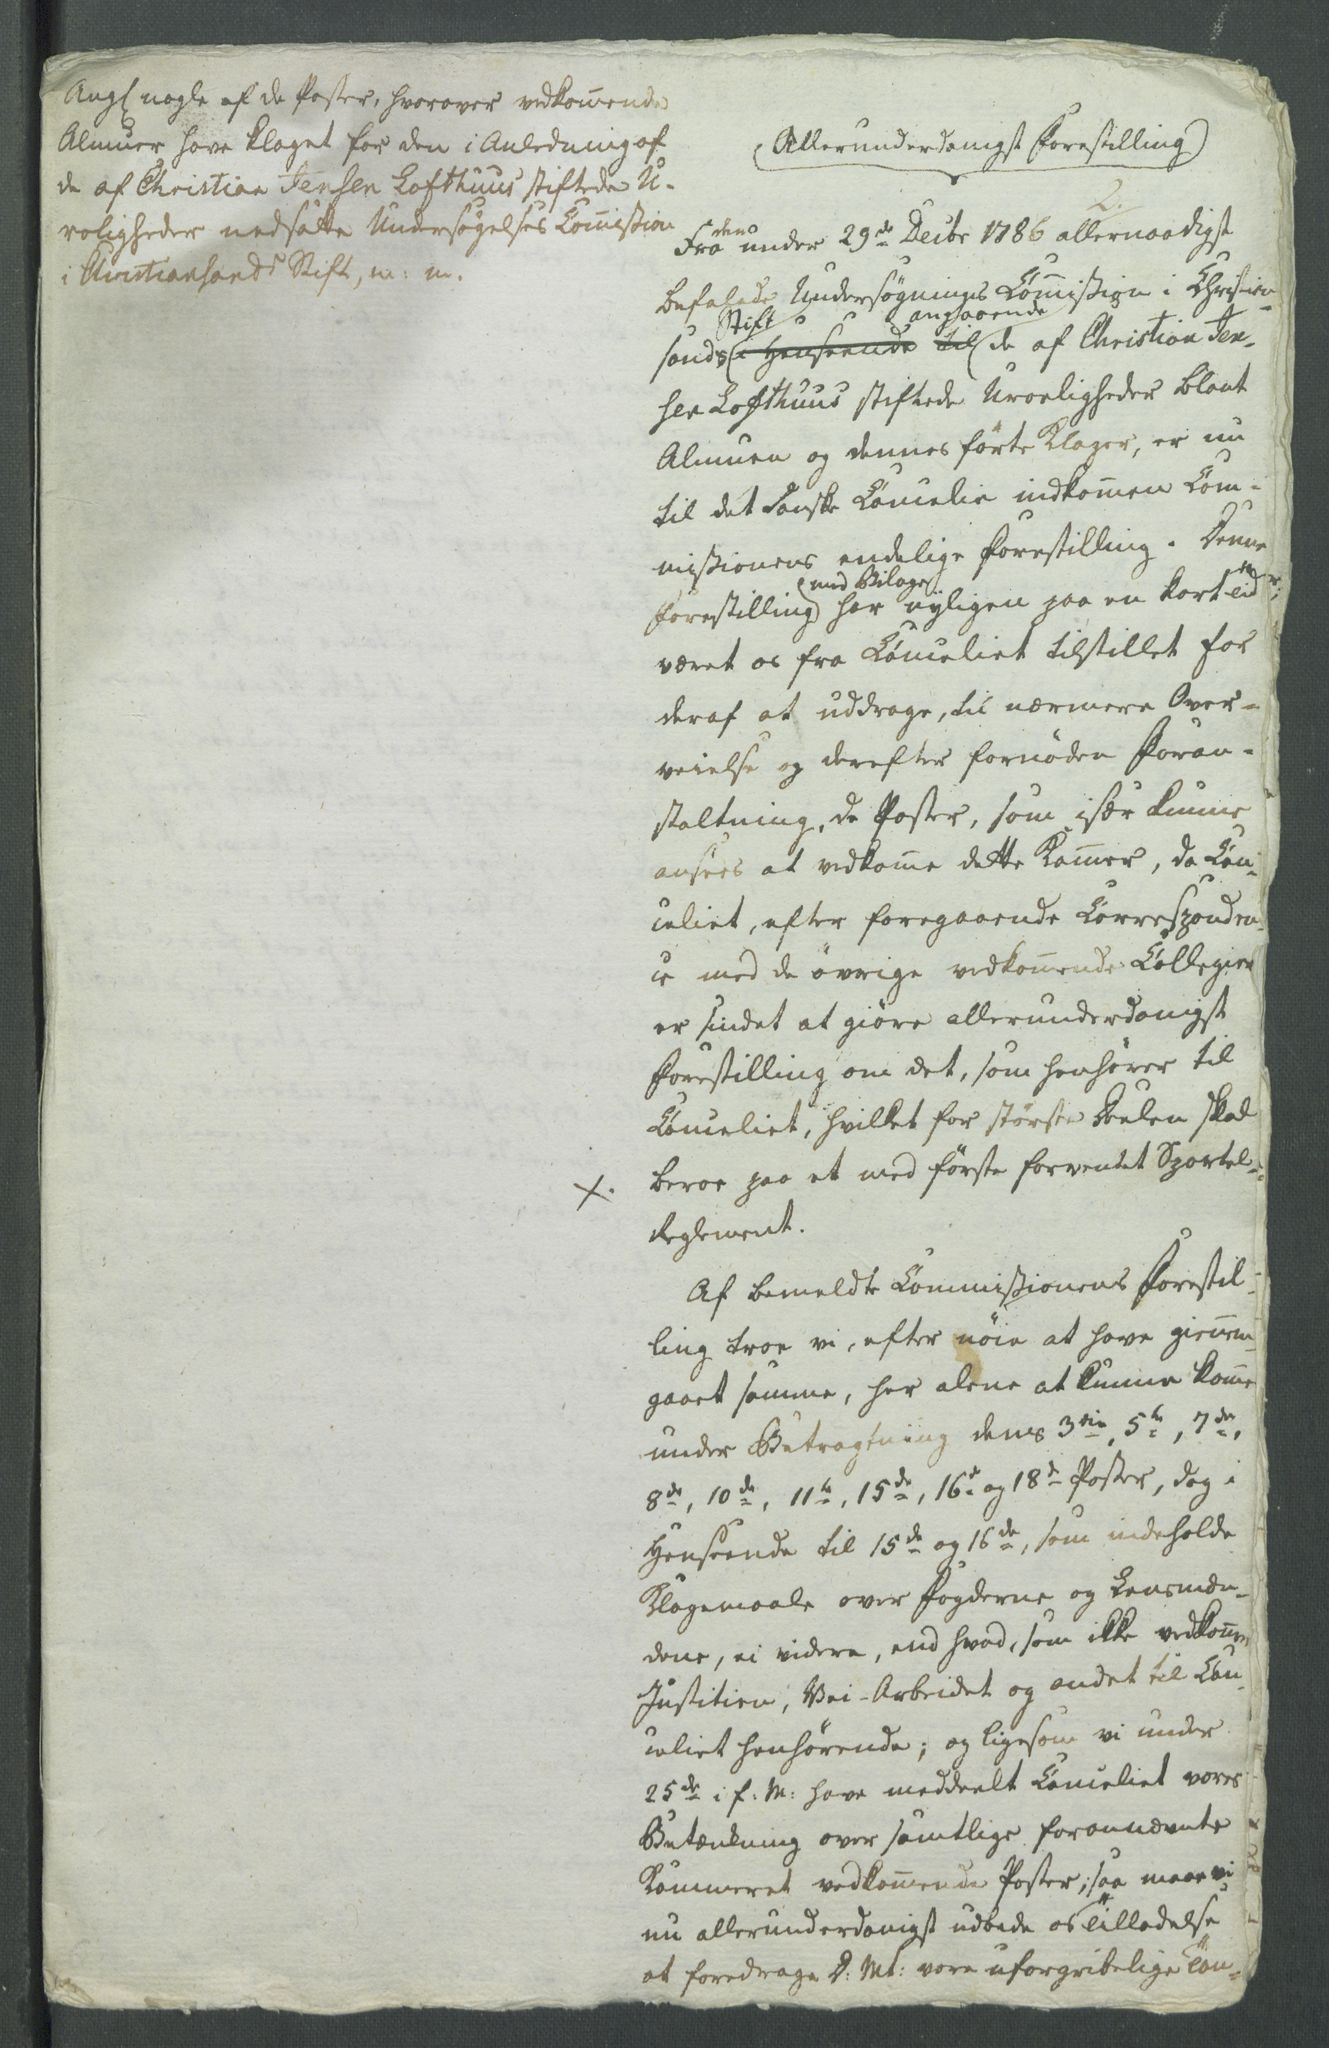 Angl nogle af de Poster, hvorover vedkommende
Almuer have klaget for den i Anledning af
de af Christian Jensen Lofthuus stiftede U-
roligheder nedsatte Undersøgelses Commission
i Christiansands Stift, m: m.
Allerunderdanigst Forestilling
2.
Fra den under 29de Decbr 1786 allernaadigst
befalede Undersøgnings Commission i Christian-
sands Stift i Henseende til angaaende de af Christian Jen-
sen Lofthuus stiftede Uroeligheder blant
Almuen og dennes førte Klager, er nu
til det danske Cancelie indkommen Com-
missionens endelige Forestilling. Denne
Forestilling med Bilager har nyligen paa en kort Tid
været os fra Cancelliet tilstillet for
deraf at uddrage, til nærmere Over-
veielse og derefter fornøden Foran-
staltning, de Poster, som især kunne
ansees at vedkomme dette Kammer, da Can-
celiet, efter foregaaende Corresponden-
ce med de øvrige vedkommende Collegier
er sindet at giøre allerunderdanigst
Forestilling om det, som henhører til
Canceliet, hvilket for største Deelen skal
X. beroe paa et med første forventet Sportel-
Reglement.
Af bemeldte Commissionens Forestil-
ling troe vi, efter nøie at have giennem-
gaaet samme, her alene at kunne komme
under Betragtning dens 3die, 5te, 7de,
8de, 10de, 11te, 15de, 16de og 18de Poster, dog i
Henseende til 15de og 16de, som indeholde
Klagemaale over Fogderne og Lensmæn-
dene, ei videre, end hvad, som ikke vedkommer
Justitien, Vei-Arbeidet og andet til Can-
celiet henhørende; og ligesom vi under
25de i f: M: have meddeelt Canceliet vores
Betænkning over samtlige forannævnte
Kammeret vedkommende Poster, saa maae vi
nu allerunderdanigst udbede os Tilladelse
at foredrage D: Mt: vore uforgribelige Tan-